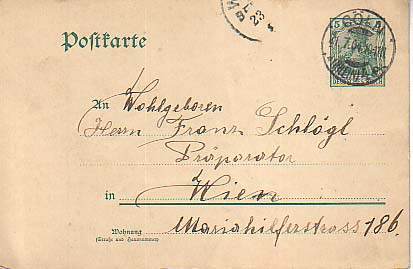 Postkarte
5
CÖLN
23
An Wohlgeboren
Herrn Franz Schlögl
Präparator
in Wien
Wohnung
(Straße und Hausnummer)
Mariahilferstrass 186.